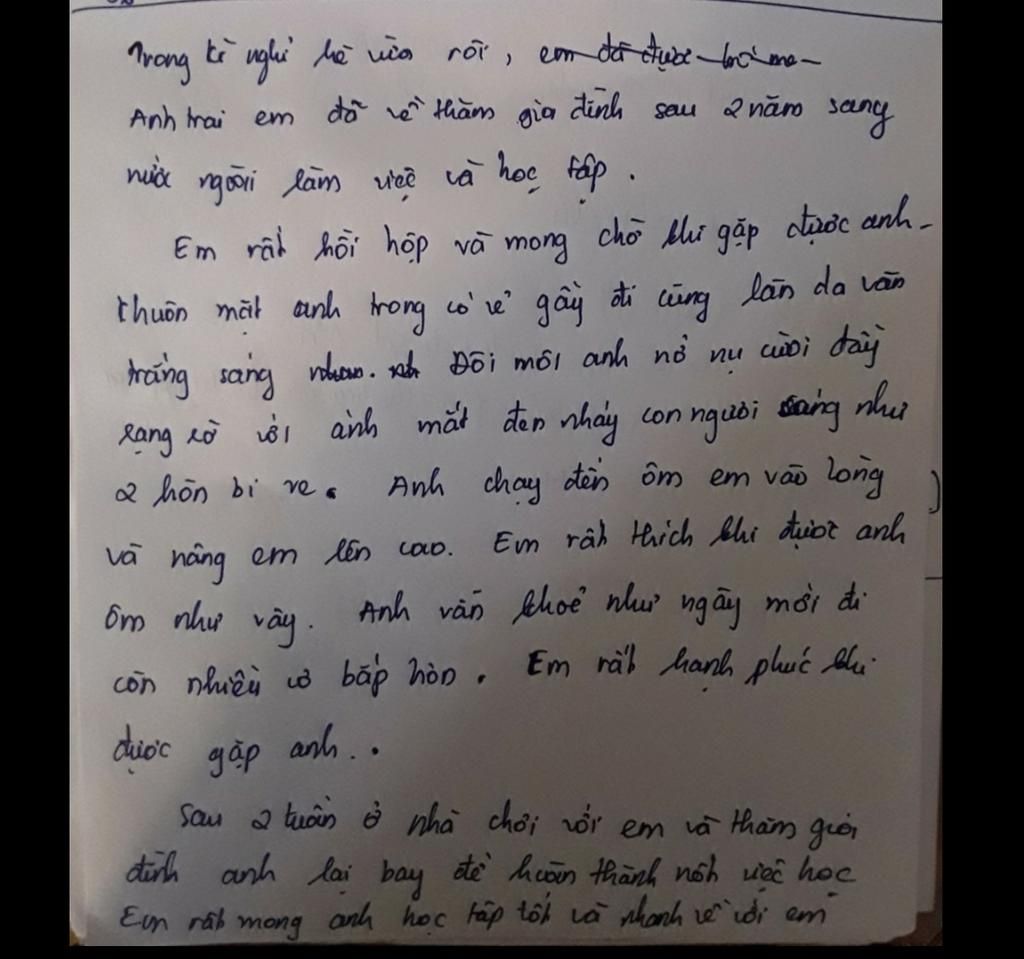 Trong kì nghỉ hè vừa rồi, em đã được bố mẹ
Anh trai em đã về thăm gia đình sau 2 năm sang
nước ngoài làm việc và học tập.
Em rất hồi hộp và mong chờ khi gặp được anh.
thuôn mặt anh trong có vẻ gầy đi cùng làn da vẫn
trắng sáng Đôi môi anh nở nụ cười đầy
rạng rỡ với ánh mắt đen nháy con người sáng như
2 hòn bi ve. Anh chạy đến ôm em vào lòng
và nâng em lên cao. Em rất thích khi được anh
ôm như vậy. Anh vẫn khoẻ như ngày mới đi
còn nhiều cơ bắp hơn. Em rất hạnh phúc khi
được gặp anh..
Sau 2 tuần ở nhà chơi với em và thăm gia
đình anh lại bay để hoàn thành nốt việc học
Em rất mong anh học tập tốt và nhanh về với em